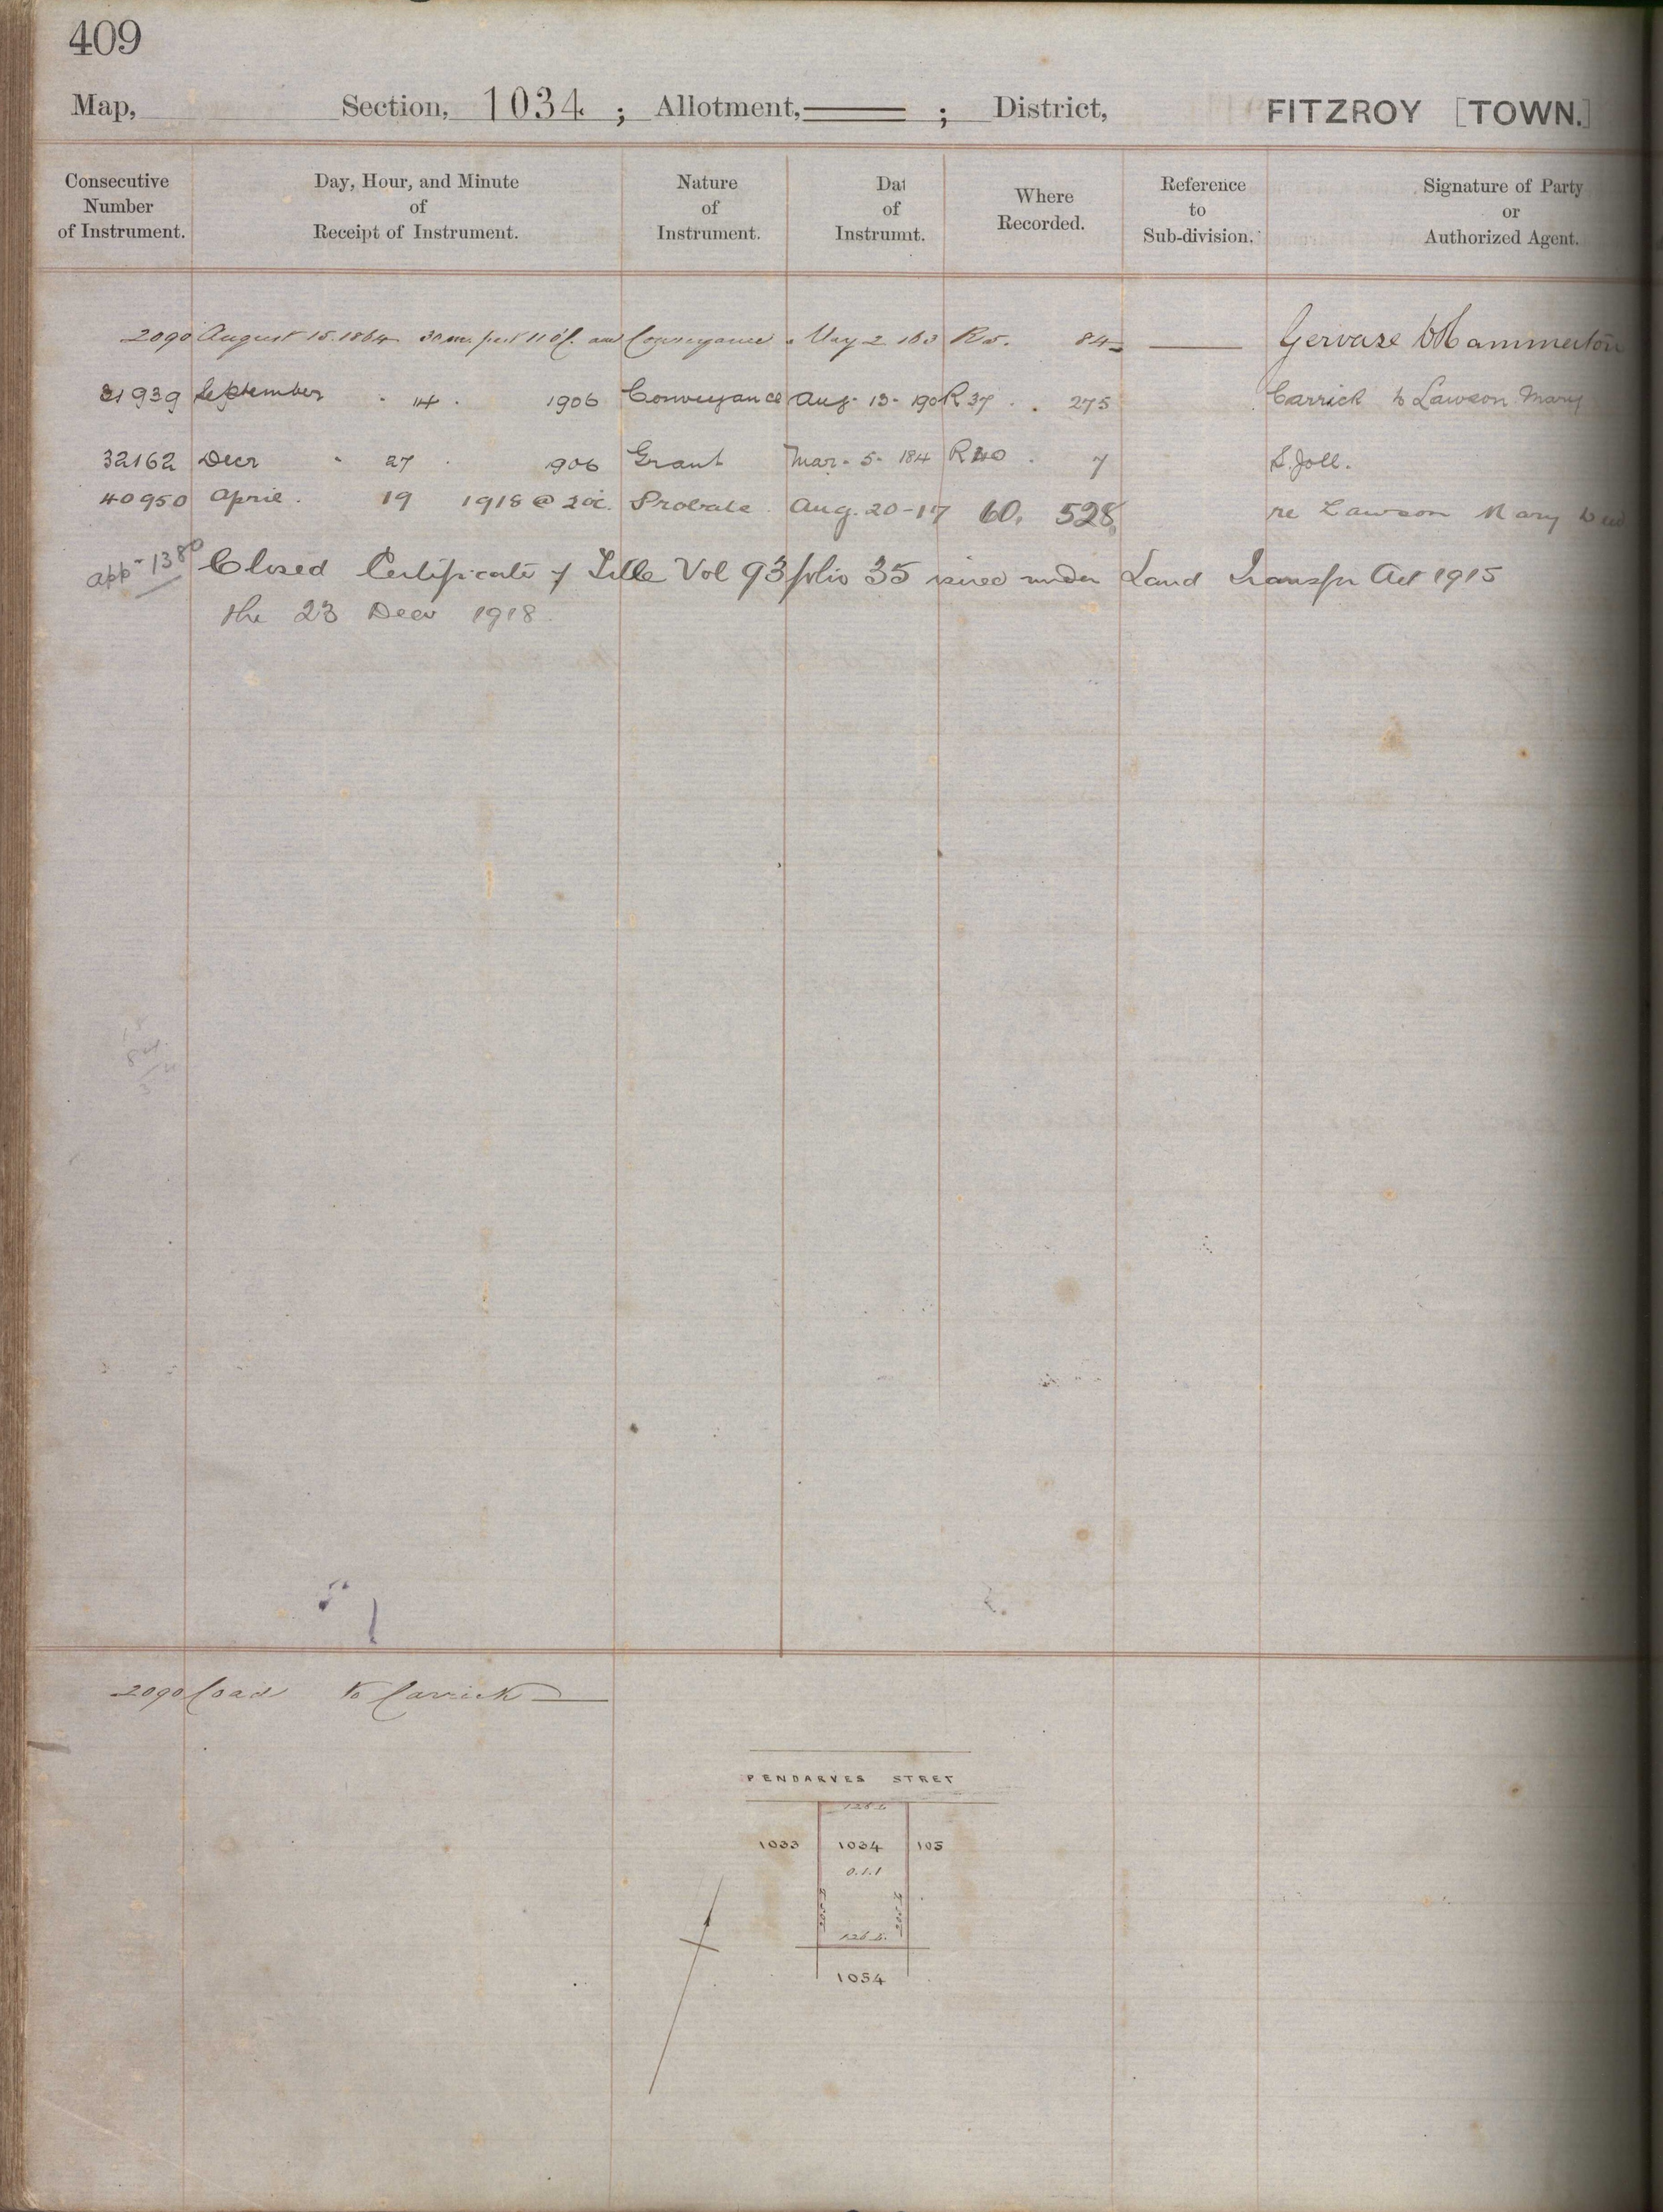 409
Map, Section, 1034 ; Allotment, ; District, FITZROY [TOWN.]
Consecutive Number of Instrument. Day, Hour, and Minute of Receipt of Instrument. Nature of Instrument. Dat of Instrumnt. Where Recorded. Reference to Sub-division. Signature of Party or Authorized Agent.
2090 August 15. 1864 30 m. past 11 o'C. am Conveyance May 2 163 R5. 84 Gervase D Hammerton
31939 September " 14 . 1906 Conveyance Aug. 13 - 190 R 37 . . 275 Carrick to Lawson Mary
32162 Decr " 27 . 906 Grant Mar. 5. 184 R 40 . 7 S. Joll.
40950 April . 19 1918 @ 2 oc. Probate Aug. 20-17 60. 528 re Lawson Mary
app- 1380 Closed Certificate of Title Vol 93 folio 35 issued under Land Transfer Act 1915
the 23 Decr 1918
2090 Coad to Carrick
PENDARVES STRET
126 L.
1033 1034 103
0.1.1
205 L 205 L
126 L.
1054